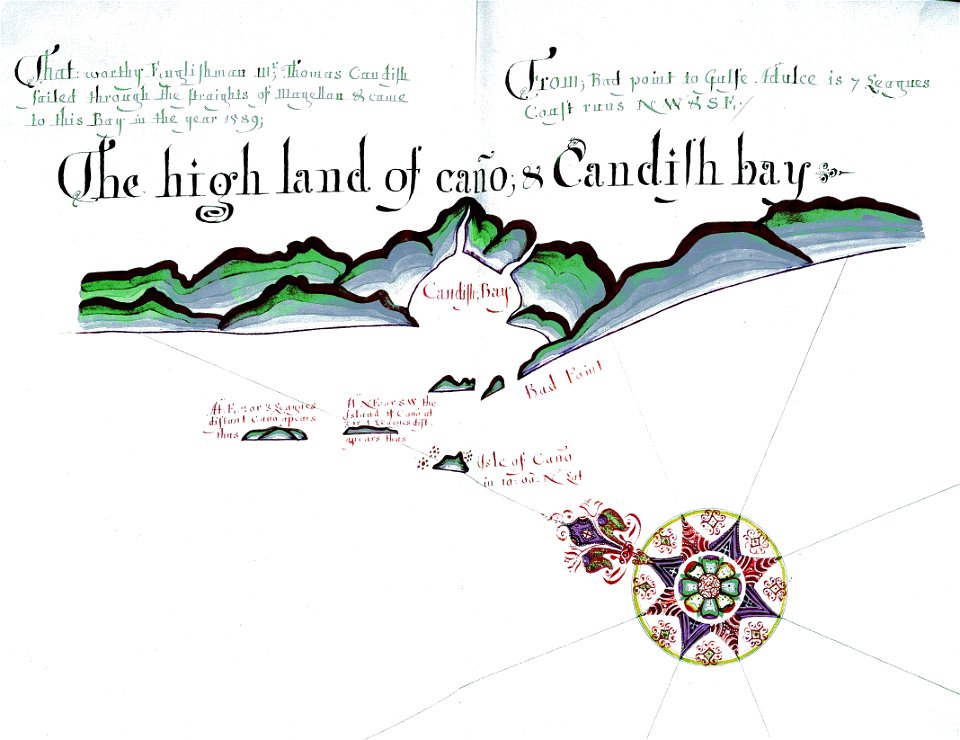 That worthy Englishman Mr; Thomas Candish
sailed through the straights of Magellan & came
to this Bay in the year 1589;
From; Bad point to Gulfe Adulce is 7 Leagues
Coast runs N W & S E;
The high land of caño; & Candish bay
Candish; Bay
Bad Point
At E, 2 or 3 Leagues
distant Caño apears
thus
At N E or S W the
Island of Caño at
Leagues dist.
apears thus
Isle of Caño
in 10: 00: N Lat